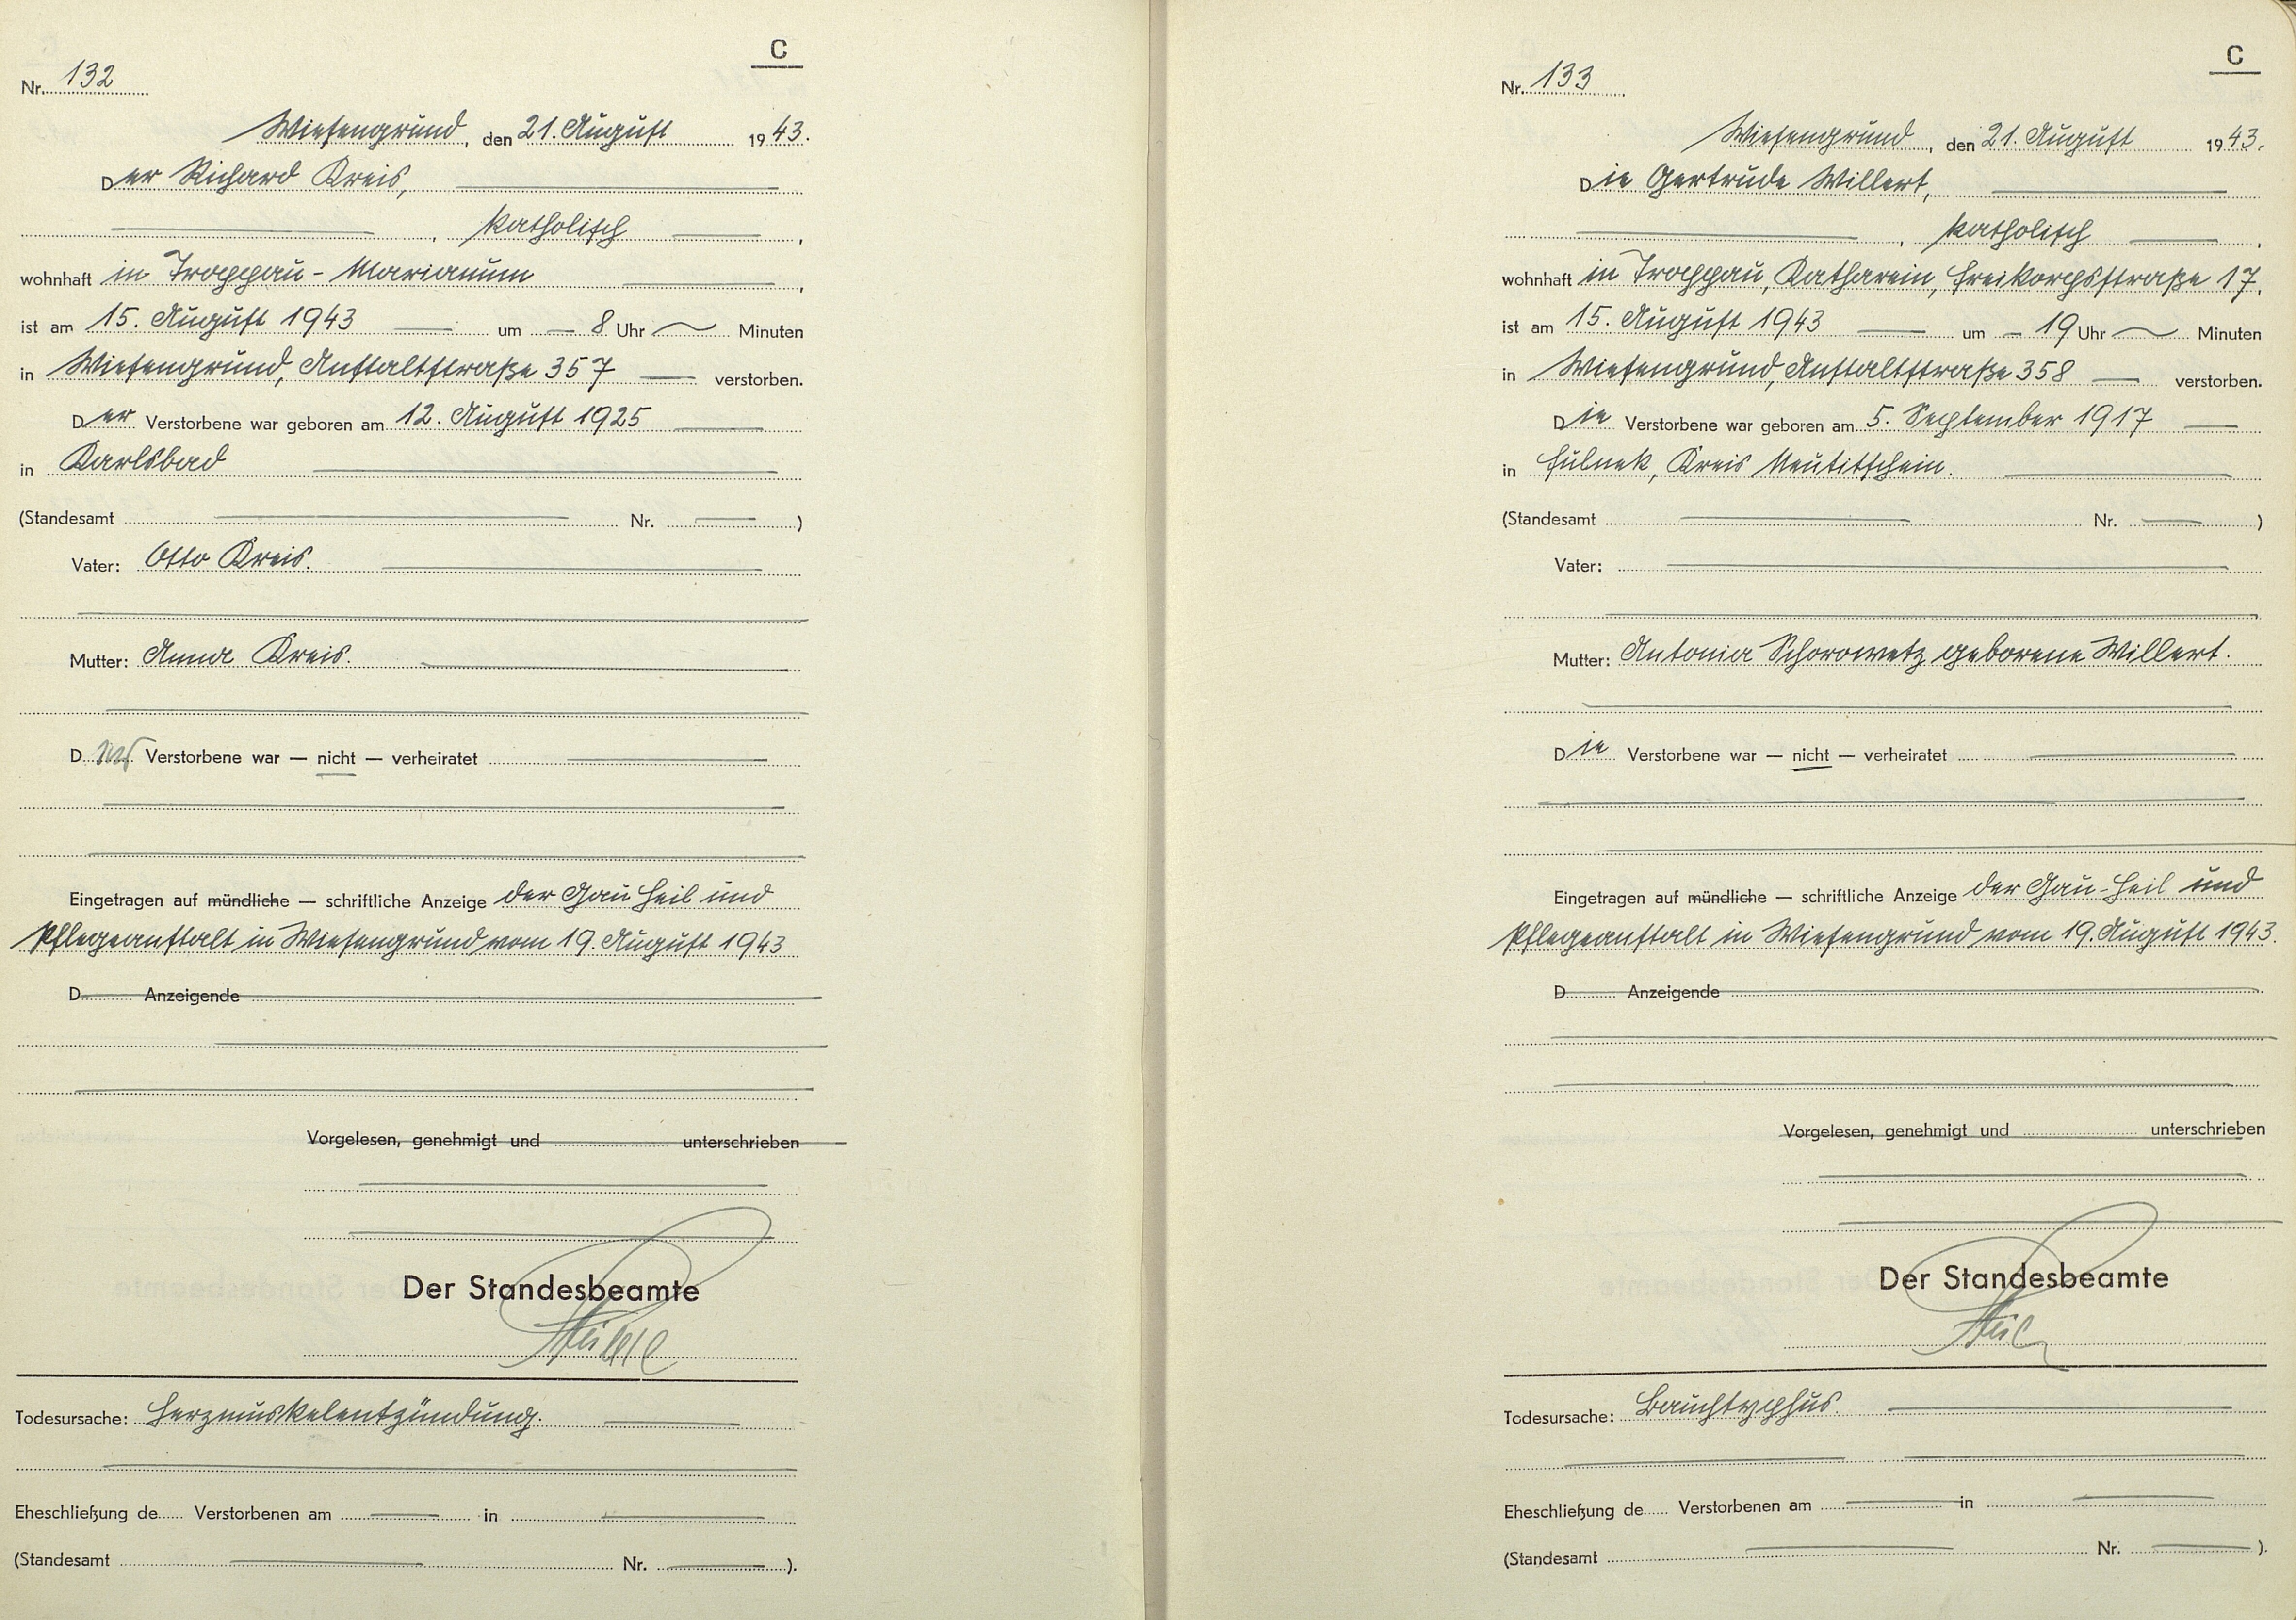 C
Nr. 132
Wiesengrund, den 21. August 1943.
Der Richard Kreis,
, katholisch ,
wohnhaft in Troppau - Marianum ,
ist am 15. August 1943 um 8 Uhr Minuten
in Wiesengrund, Anstaltstraße 357 verstorben.
Der Verstorbene war geboren am 12. August 1925
in Karlsbad
(Standesamt Nr. )
Vater: Otto Kreis.
Mutter: Anna Kreis.
D Verstorbene war — nicht — verheiratet
Eingetragen auf mündliche — schriftliche Anzeige der Gau Heil und
Pflegeanstalt in Wiesengrund vom 19. August 1943
D Anzeigende
Vorgelesen, genehmigt und unterschrieben
Der Standesbeamte
Todesursache: Herzmuskelentzündung.
Eheschließung de Verstorbenen am in
(Standesamt Nr. ).
C
Nr. 133
Wiesengrund, den 21. August 1943.
Die Gertrude Willert,
, katholisch ,
wohnhaft in Troppau, Katharein, Freikorpsstraße 17,
ist am 15. August 1943 um 19 Uhr Minuten
in Wiesengrund, Anstaltstraße 358 verstorben.
Die Verstorbene war geboren am 5. September 1917
in Fulnek, Kreis Neutitschein.
(Standesamt Nr. )
Vater:
Mutter: Antonia Schorowetz geborene Willert.
Die Verstorbene war — nicht — verheiratet
Eingetragen auf mündliche — schriftliche Anzeige der Gau-Heil und
Pflegeanstalt in Wiesengrund vom 19. August 1943.
D Anzeigende
Vorgelesen, genehmigt und unterschrieben
Der Standesbeamte
Todesursache: Bauchtyphus.
Eheschließung de Verstorbenen am in
(Standesamt Nr. ).